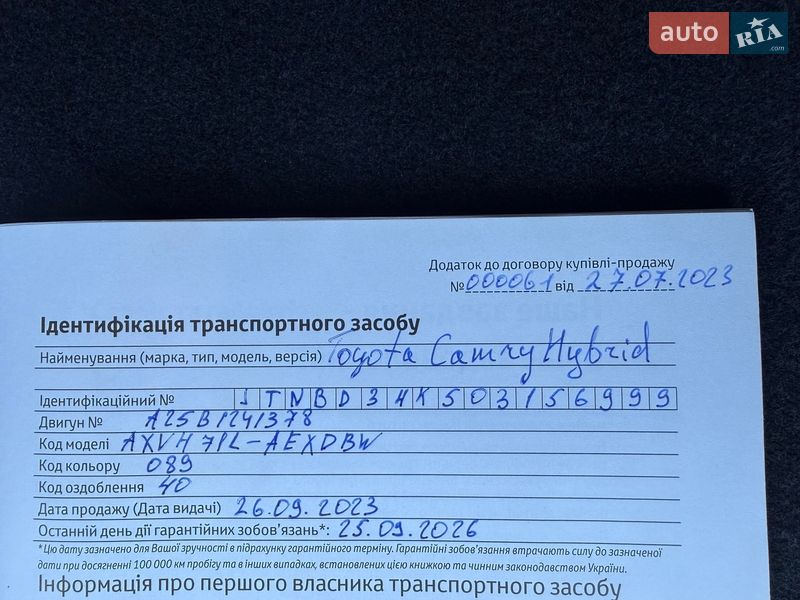 auto RIA .com
Додаток до договору купівлі-продажу
№ 000061 від 27.07.2023
Ідентифікація транспортного засобу
Найменування (марка, тип, модель, версія) Toyota Camry Hybrid
Ідентифікаційний № JTNBD34K503156999
Двигун № A25B1241378
Код моделі AXVH71L-AEXDBW
Код кольору 089
Код оздоблення 40
Дата продажу (Дата видачі) 26.09.2023
Останній день дії гарантійних зобов'язань*: 25.09.2026
*Цю дату зазначено для Вашої зручності в підрахунку гарантійного терміну. Гарантійні зобов'язання втрачають силу до зазначеної
дати при досягненні 100 000 км пробігу та в інших випадках, встановлених цією книжкою та чинним законодавством України.
Інформація про першого власника транспортного засобу